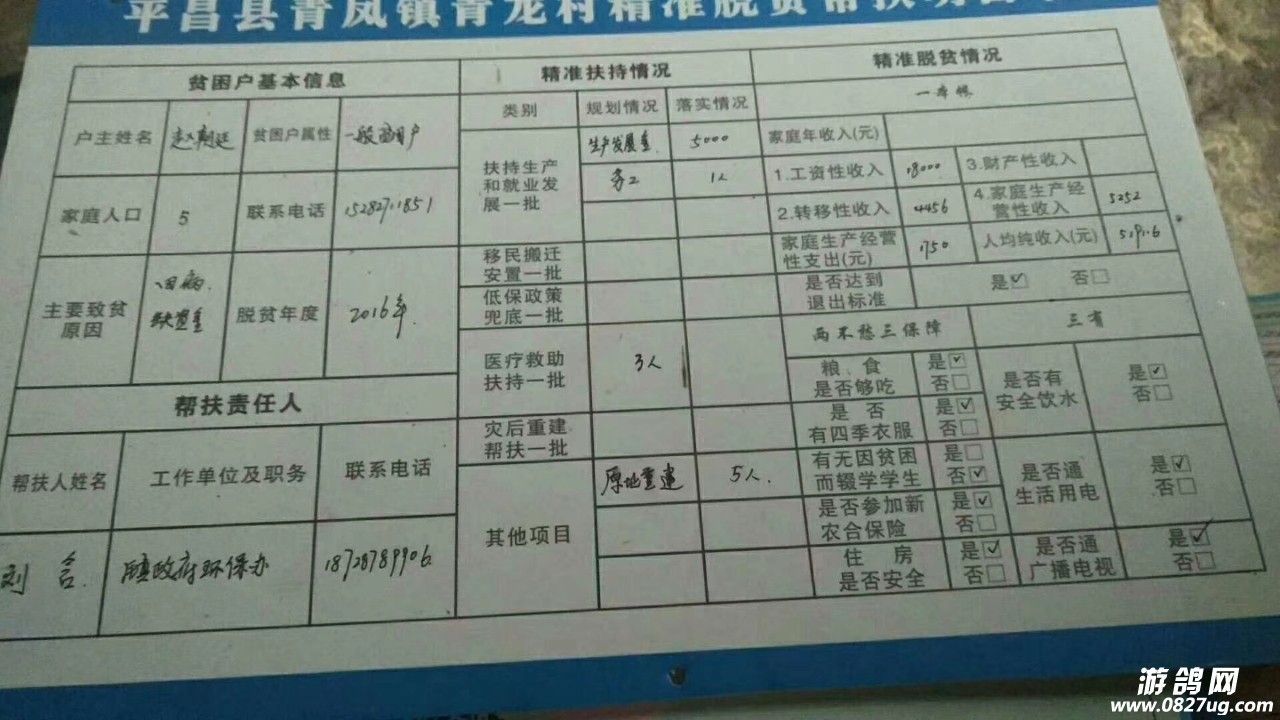 平昌县青凤镇青龙村精准脱贫帮扶明白卡
贫困户基本信息
精准扶持情况
精准脱贫情况
户主姓名
贫困户属性 一般贫困户
类别 规划情况 落实情况
一本帐
扶持生产
和就业发
展一批
生产发展金 5000
务工 1人
家庭年收入(元)
1.工资性收入 18000 3.财产性收入
2.转移性收入 4456 4.家庭生产经
营性收入 5252
家庭人口 5 联系电话 15282711851
移民搬迁
安置一批
家庭生产经营
性支出(元) 1750 人均纯收入(元) 5191.6
主要致贫
原因
因病.
缺资金
脱贫年度 2016年
低保政策
兜底一批
是否达到
退出标准
是☑ 否□
两不愁三保障 三有
医疗救助
扶持一批
3人
粮 食
是否够吃
是☑
否□
是否有
安全饮水
是☑
否□
帮扶责任人
灾后重建
帮扶一批
是 否
有四季衣服
是☑
否□
帮扶人姓名 工作单位及职务 联系电话
其他项目
原地重建 5人.
有无因贫困
而辍学学生
是□
否☑
是否通
生活用电
是☑
否□
是否参加新
农合保险
是☑
否□
刘 镇政府环保办 18728789906
住 房
是否安全
是☑
否□
是否通
广播电视
是☑
否□
游鸽网
www.0827ug.com